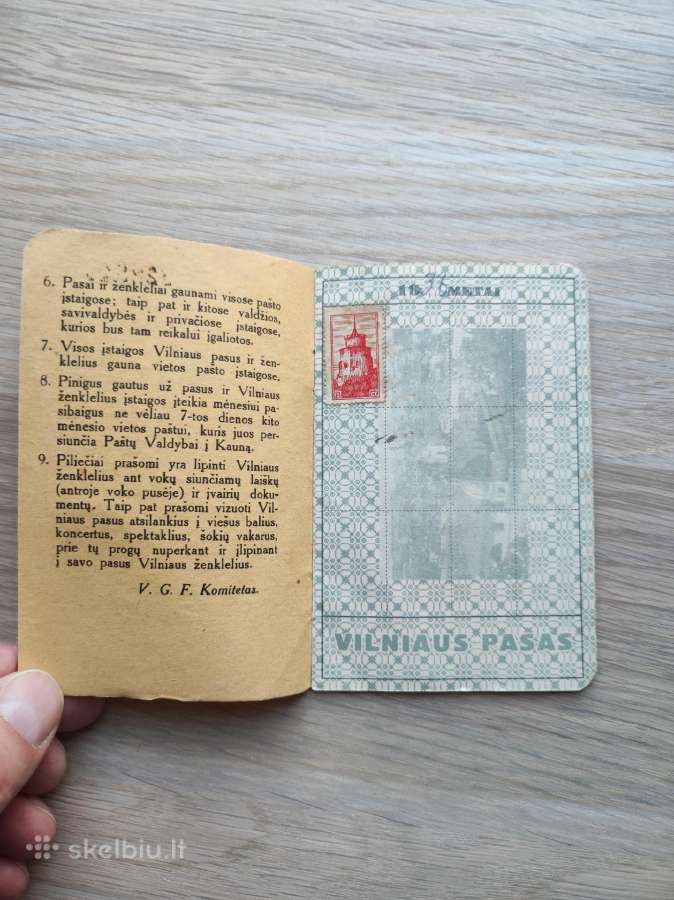 6. Pasai ir ženkleliai gaunami visose pašto
įstaigose; taip pat ir kitose valdžios,
savivaldybės ir privačiose įstaigose,
kurios bus tam reikalui įgaliotos.
7. Visos įstaigos Vilniaus pasus ir žen-
klelius gauna vietos pašto įstaigose.
8. Pinigus gautus už pasus ir Vilniaus
ženklelius įstaigos įteikia mėnesiui pa-
sibaigus ne vėliau 7-tos dienos kito
mėnesio vietos paštui, kuris juos per-
siunčia Paštų Valdybai į Kauną.
9. Piliečiai prašomi yra lipinti Vilniaus
ženklelius ant vokų siunčiamų laiškų
(antroje voko pusėje) ir įvairių doku-
mentų. Taip pat prašomi vizuoti Vil-
niaus pasus atsilankius į viešus balius,
koncertus, spektaklius, šokių vakarus,
prie tų progų nuperkant ir įlipinant
į savo pasus Vilniaus ženklelius.
V. G. F. Komitetas.
METAI
VILNIAUS PASAS
skelbiu.lt